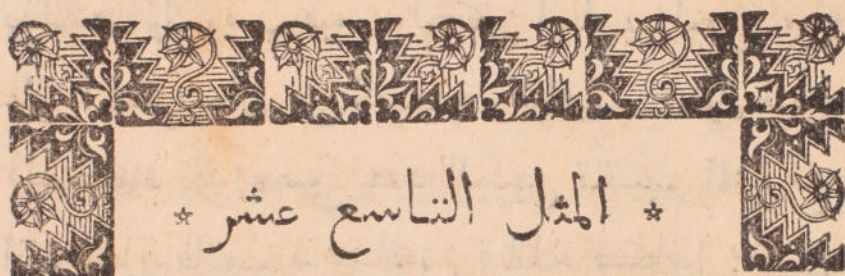 * المثل التاسع عشر *